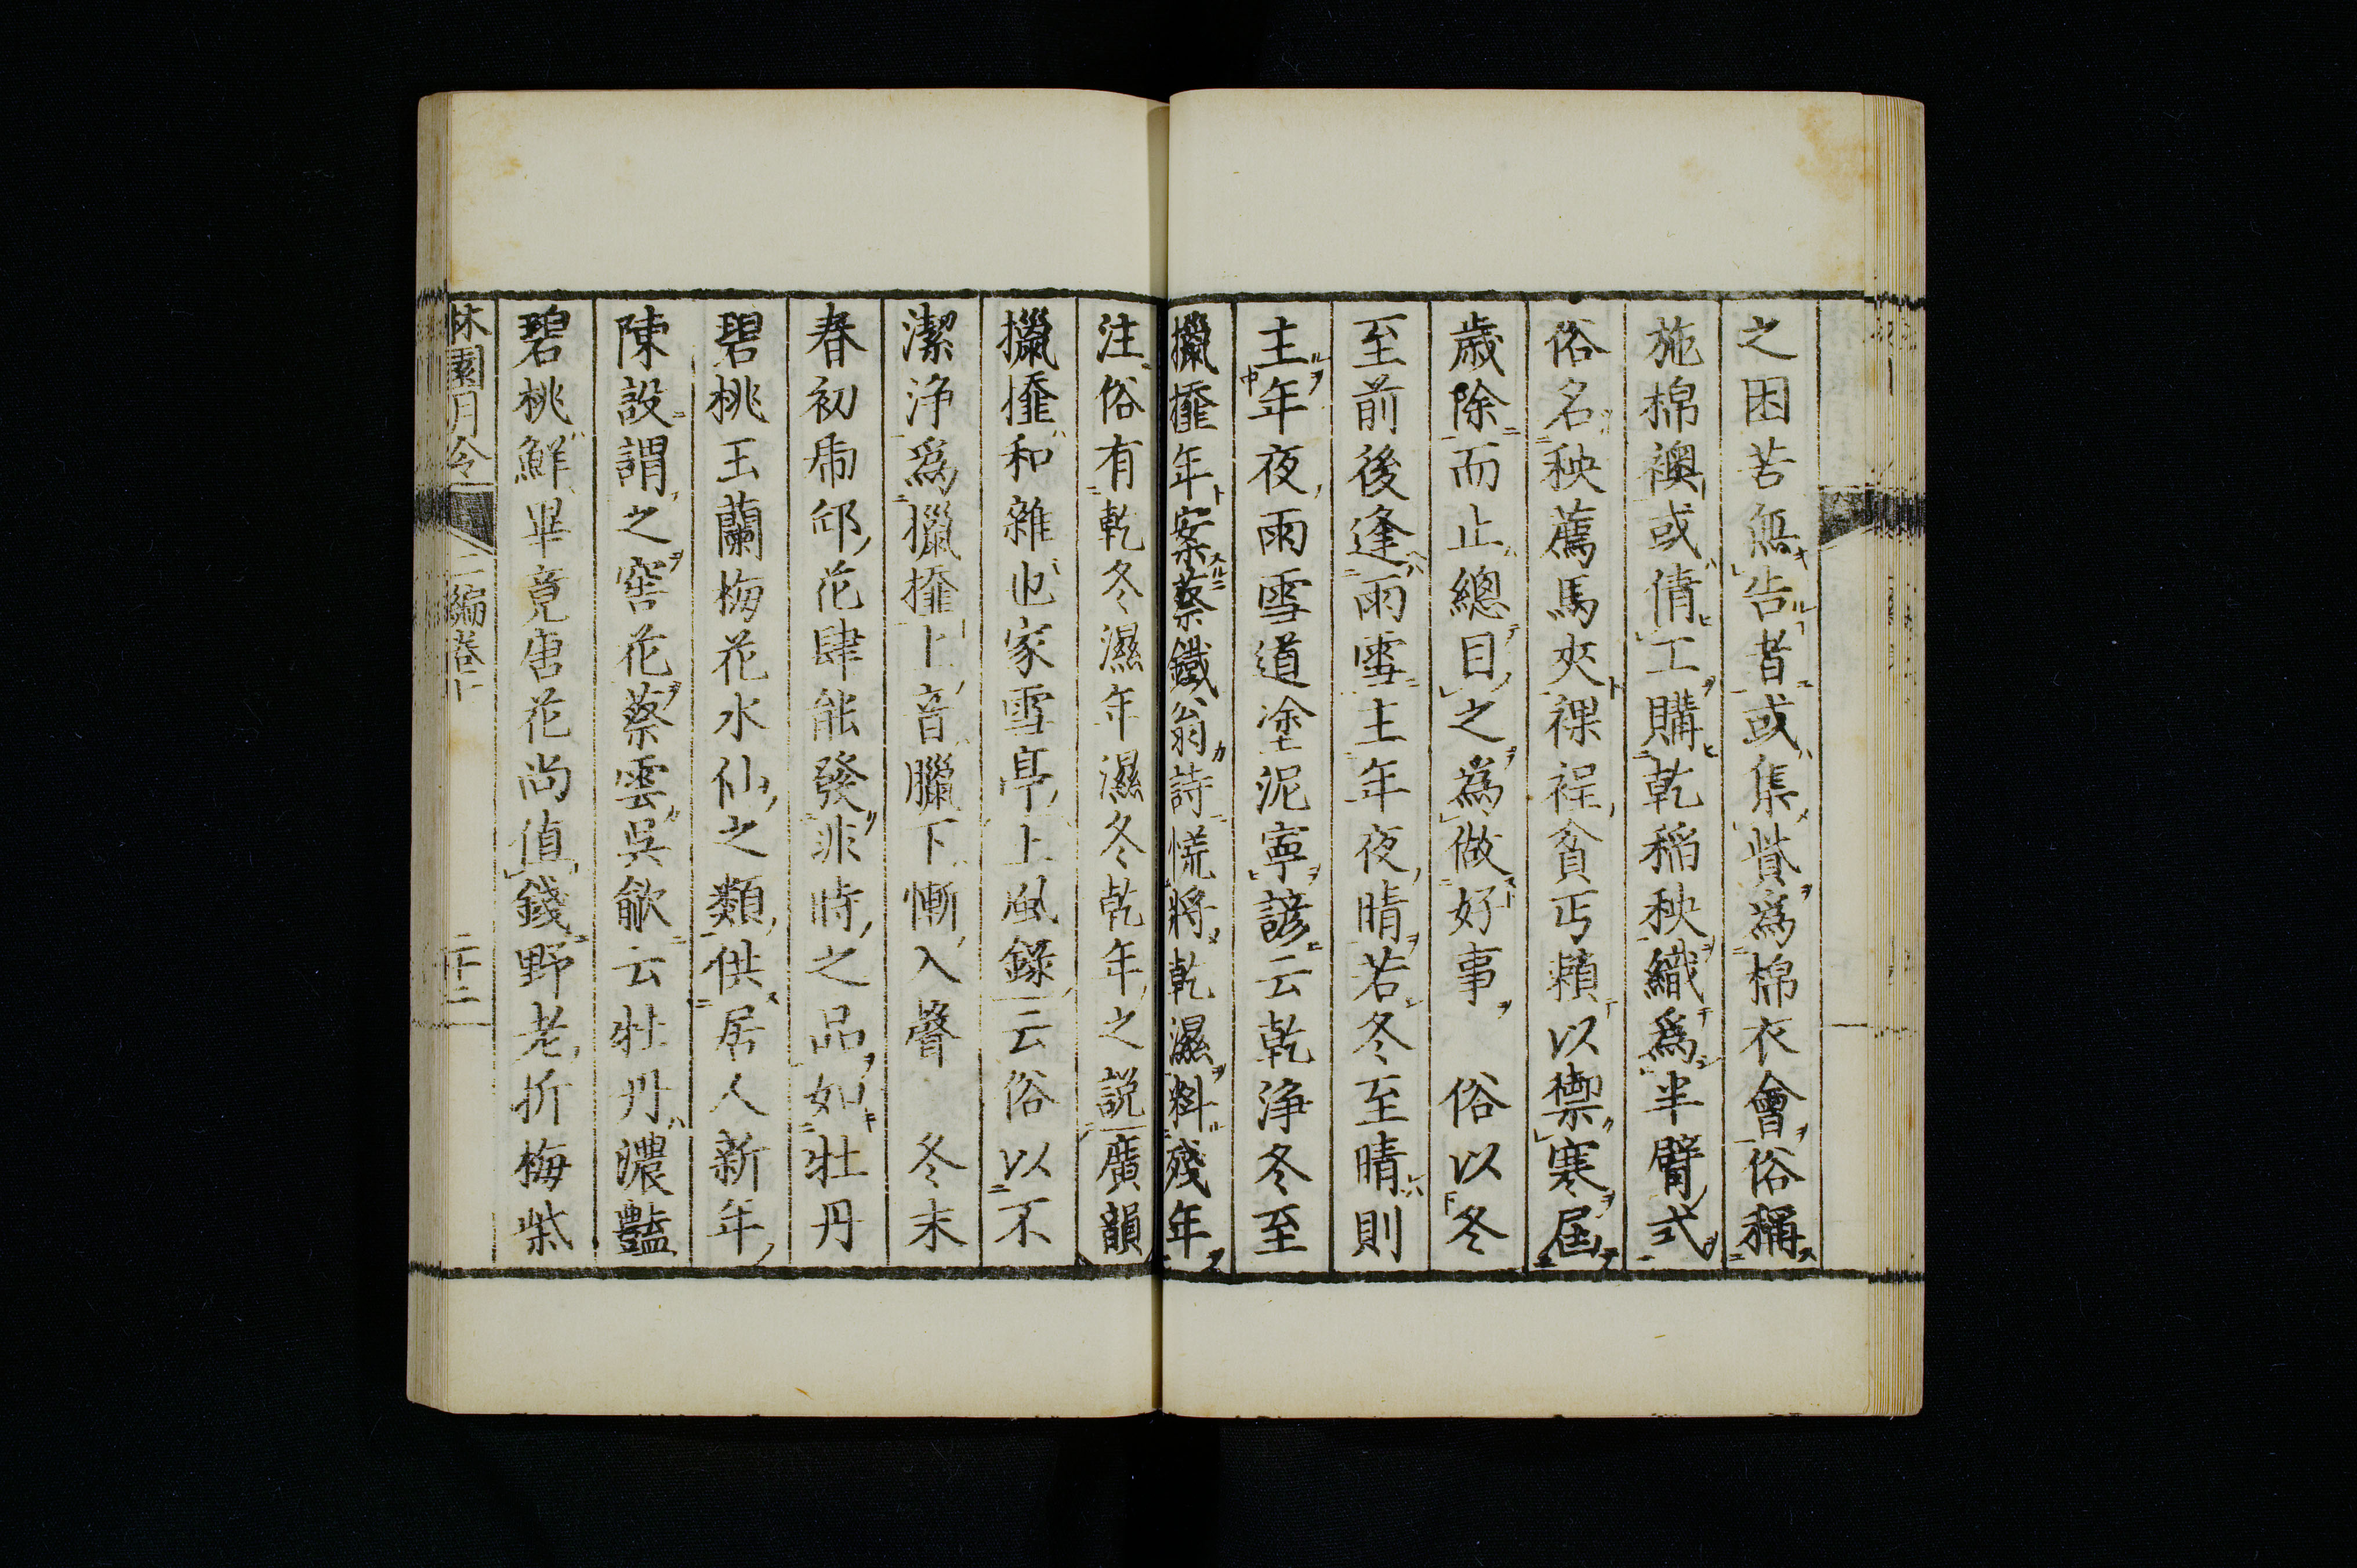 之困苦無告者或集貲爲棉衣會俗稱
施棉襖或倩工購乾稲秧織爲半臂式
俗名秧薦馬夾裸裎貧丐頼以禦寒届
歳除而止總目之爲做好事　俗以冬
至前後逢雨雪主年夜晴若冬至晴則
主年夜雨雪道塗泥寧諺云乾浄冬至
擸𢶍年案蔡鐵翁詩慌將乾濕料殘年
注俗有乾冬濕年濕冬乾年之説廣韻
擸𢶍和雜也家雪亭土風録云俗以不
潔浄爲擸𢶍上音臘下慚入聲　冬末
春初虎邱花肆能發非時之品如牡丹
碧桃玉蘭梅花水仙之類供居人新年
陳設謂之窖花蔡雲呉歈云牡丹濃豔
碧桃鮮畢竟唐花尚値錢野老折梅柴
林園月令
二編巻下
二十二